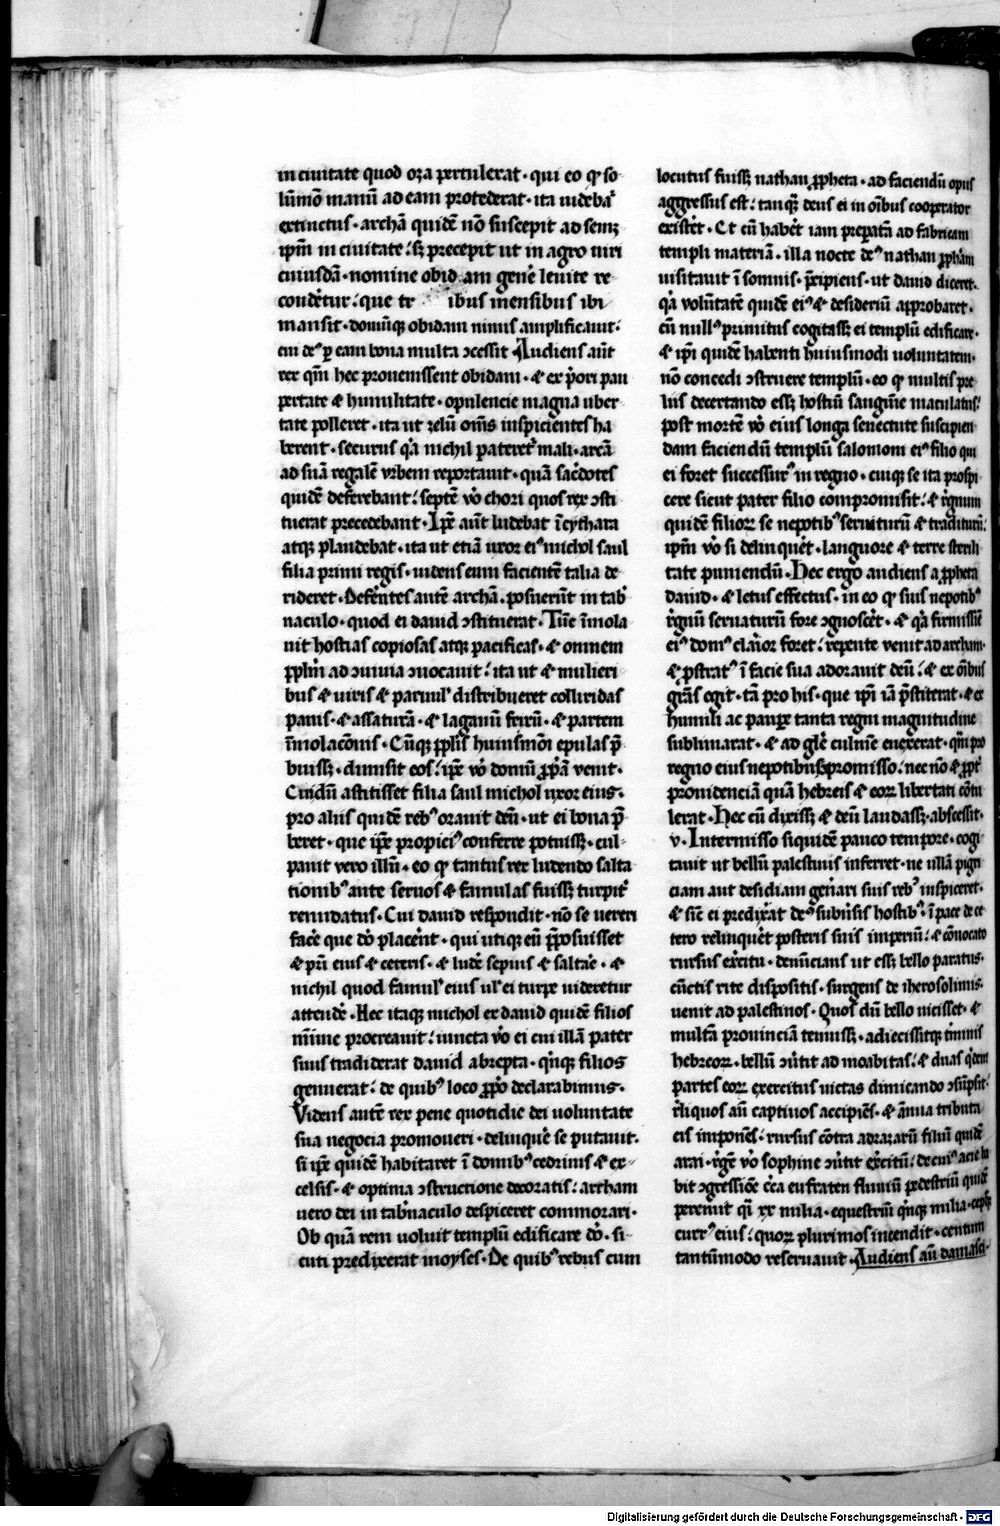 in ciuitate quod oza pertulerat · qui eo qͥ so
lūmō manū ad eam protederat · ita uidebaͭ
extinctus · archā quidē nō suscepit ad semꝫ
ip̄m in ciuitate : sꝫ precepit ut in agro uiri
cuiusdā · nomine obid am gene᷑ leuite re
conde᷑tur : que tr ibus mensibus ibi
mansit · domūqꝫ obidam nimis amplificauit :
cui deꝰ ꝑ eam bona multa ↄcessit Audiens aūt
rex qm̄ hec prouenissent obidam · & ex p̄ori pau
pertate & humilitate · opulencie magna uber
tate polleret · ita ut zelū om̄s inspicientes ha
berent · securus qͣ nichil pateret᷑ mali · arcā
ad suā regalē vrbem reportauit · quā sac̄dotes
quidē defe᷑rebant : septē vō chori quos rex ↄsti
tuerat precedebant · Ip̄e aūt ludebat ī cythara
atqꝫ plaudebat · ita ut etiā uxor eiꝰ michol saul
filia primi regis · uidens eum facientē talia de
rideret · Defe᷑ntes autē archā · posuerūt in tab᷑
naculo · quod ei dauid ↄstituerat · Tūc īmola
uit hostias copiosas atqꝫ pacificas · & omnem
pp̄lm̄ ad ↄuiuia ↄuocauit : ita ut & mulieri
bus & uiris & paruul᷑ distribueret colluridas
panis · & assaturā · & laganū frixū · & partem
īmolac̄onis · Cūqꝫ pp̄lis huiusmōi epulas p̄
buissꝫ · dimisit eos : ip̄e vō domū ꝓpͥā venit ·
Cui dū astitisset filia saul michol uxor eius ·
pro aliis quidē rebꝰ orauit deū · ut ei bona p̄
beret · que ip̄e propiciꝰ conferre potuissꝫ · cul
pauit vero illū · eo qͥ tantus rex ludendo salta
tionibꝰ ante seruos & famulas fuissꝫ turpit᷑
renudatus · Cui dauid respondit · nō se uereri
face᷑ que dō place᷑nt · qui utiqꝫ eū p̄posuisset
& pr̄i eius & ceteris · & lude᷑ sepius & salta᷑e · &
nichil quod famul᷑ eius ul᷑ ei turpe uideretur
attende᷑ · Hec itaqꝫ michol ex dauid quidē filios
mīme procreauit : iuncta vō ei cui illā pater
suus tradiderat dauid abrepta · qͥnqꝫ filios
genuerat : de quibꝰ loco ꝓpͥo declarabimus ·
Videns autē rex pene quotidie dei uoluntate
sua negocia promoueri · delinque᷑ se putauit ·
si ip̄e quidē habitaret ī domibꝰ cedrinis & ex
celsis · & optima ↄstructione decoratis : archam
uero dei in tab᷑naculo despiceret commorari ·
Ob quā rem uoluit templū edificare dō · si
cuti predixerat moyses · De quibꝰ rebus cum
locutus fuissꝫ nathan ꝓpheta · ad faciendū opus
aggressus est : tanqꝫ deus ei in om̄ibus cooperator
existe᷑t · Et cū habe᷑t iam preparatā ad fabricam
templi materiā · illa nocte deꝰ nathan ꝓphām
uisitauit ī somnis · p̄cipiens · ut dauid diceret ·
qͣ volūtatē quidē eiꝰ & desideriū approbaret ·
cū nullꝰ primitus cogitassꝫ ei templū edificare ·
& ip̄i quidē habenti huiusmodi uoluntatem ·
nō concedi ↄstruere templū · eo qͥ multis pre
liis decertando essꝫ hostiū sanguīe maculatus :
post mortē vō eius longa senectute suscipien
dam faciendū templū salomoni eiꝰ filio qui
ei foret successurꝰ in regno · cuiqꝫ se ita prospi
cere sicut pater filio compromisit : & r᷑gnum
quidē filioꝝ se nepotibꝰ seruiturū & traditurū :
ip̄m vō si delinque᷑t · languore & terre sterili
tate puniendū · Hec ergo audiens a ꝓpheta
dauid · & letus effectus · in eo qͥ suis nepotibꝰ
r᷑gnū seruaturū fore ↄgnosce᷑t · & qͣ firmissīe
eiꝰ domꝰ clarior foret : repente venit ad archam ·
& p̄stratꝰ ī facie sua adorauit deū : & ex om̄ibus
grās egit · tā pro his · que ip̄i iā p̄stiterat · & ex
humili ac paupe᷑ tanta regni magnitudine
sublimarat · & ad gl᷑e culmīe euexerat · qm̄ pro
regno eius nepotibus ꝑpromisso : nec nō & ꝓpt᷑
prouidenciā quā hebreis & eoꝝ libertati cōtu
lerat · Hec cū dixissꝫ & deū laudassꝫ · abscessit ·
v · Intermisso siquidem pauco tempore · cogi
tauit ut bellū palestinis inferret · ne ullā pigri
ciam aut desidiam gen᷑ari suis rebꝰ inspiceret ·
& sic̄ ei predixe᷑at deꝰ subuersis hostibꝰ · ī pace de ce
tero relinque᷑t posteris suis imperiū : & cōuocato
rursus exe᷑citu · denūcians ut essꝫ bello paratus ·
cūctis rite dispositis · surgens de iherosolimis ·
uenit ad palestinos · Quos dū bello uicisset · &
multā prouinciā tenuissꝫ · adiecissitqꝫ t᷑minis
hebreoꝝ · bellū ↄu᷑tit ad moabitas : & duas qͥdem
partes eoꝝ exercitus uictas dimicando ↄsūpsit :
r᷑liquos aū captiuos accipiēs · & ānua tributa
eis imponēs : rursus cōtra adrazarū filiū quidē
arai · r᷑gē vō sophine ↄu᷑tit exe᷑citū : de cuiꝰ acie ha
bit ↄgressiōe ci᷑ca eufraten fluuiū pedestriū quidē
peremit qͣi xx milia · equestriū qͥnqꝫ milia · cepitqꝫ
currꝰ eius : quoꝝ plurimos incendit · centum
tantūmodo reseruauit · Audiens aū damasci ·
Digitalisierung gefördert durch die Deutsche Forschungsgemeinschaft - DFG